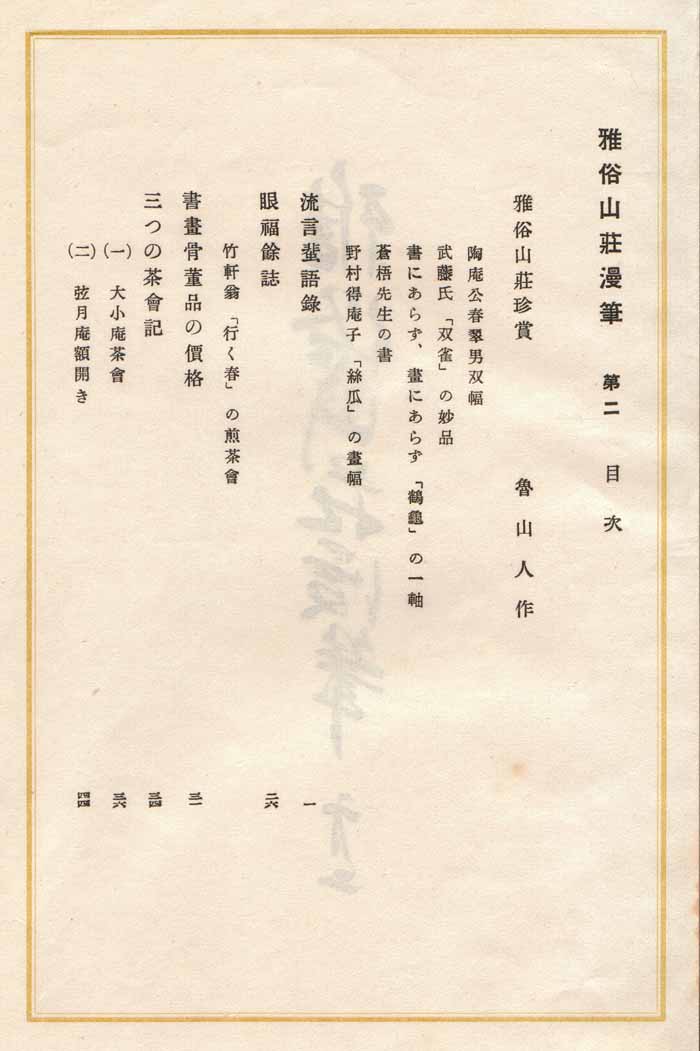 雅俗山莊漫筆 第二 目次
雅俗山莊珍賞 魯山人作
陶庵公春翠男双幅
武藤氏「双雀」の妙品
書にあらず、畫にあらず「鶴龜」の一軸
蒼梧先生の書
野村得庵子「絲瓜」の畫幅
流言蜚語錄 一
眼福餘誌 二六
竹軒翁「行く春」の煎茶會
書畫骨董品の價格 三一
三つの茶會記 三四
(一) 大小庵茶會 三六
(二) 弦月庵額開き 四四